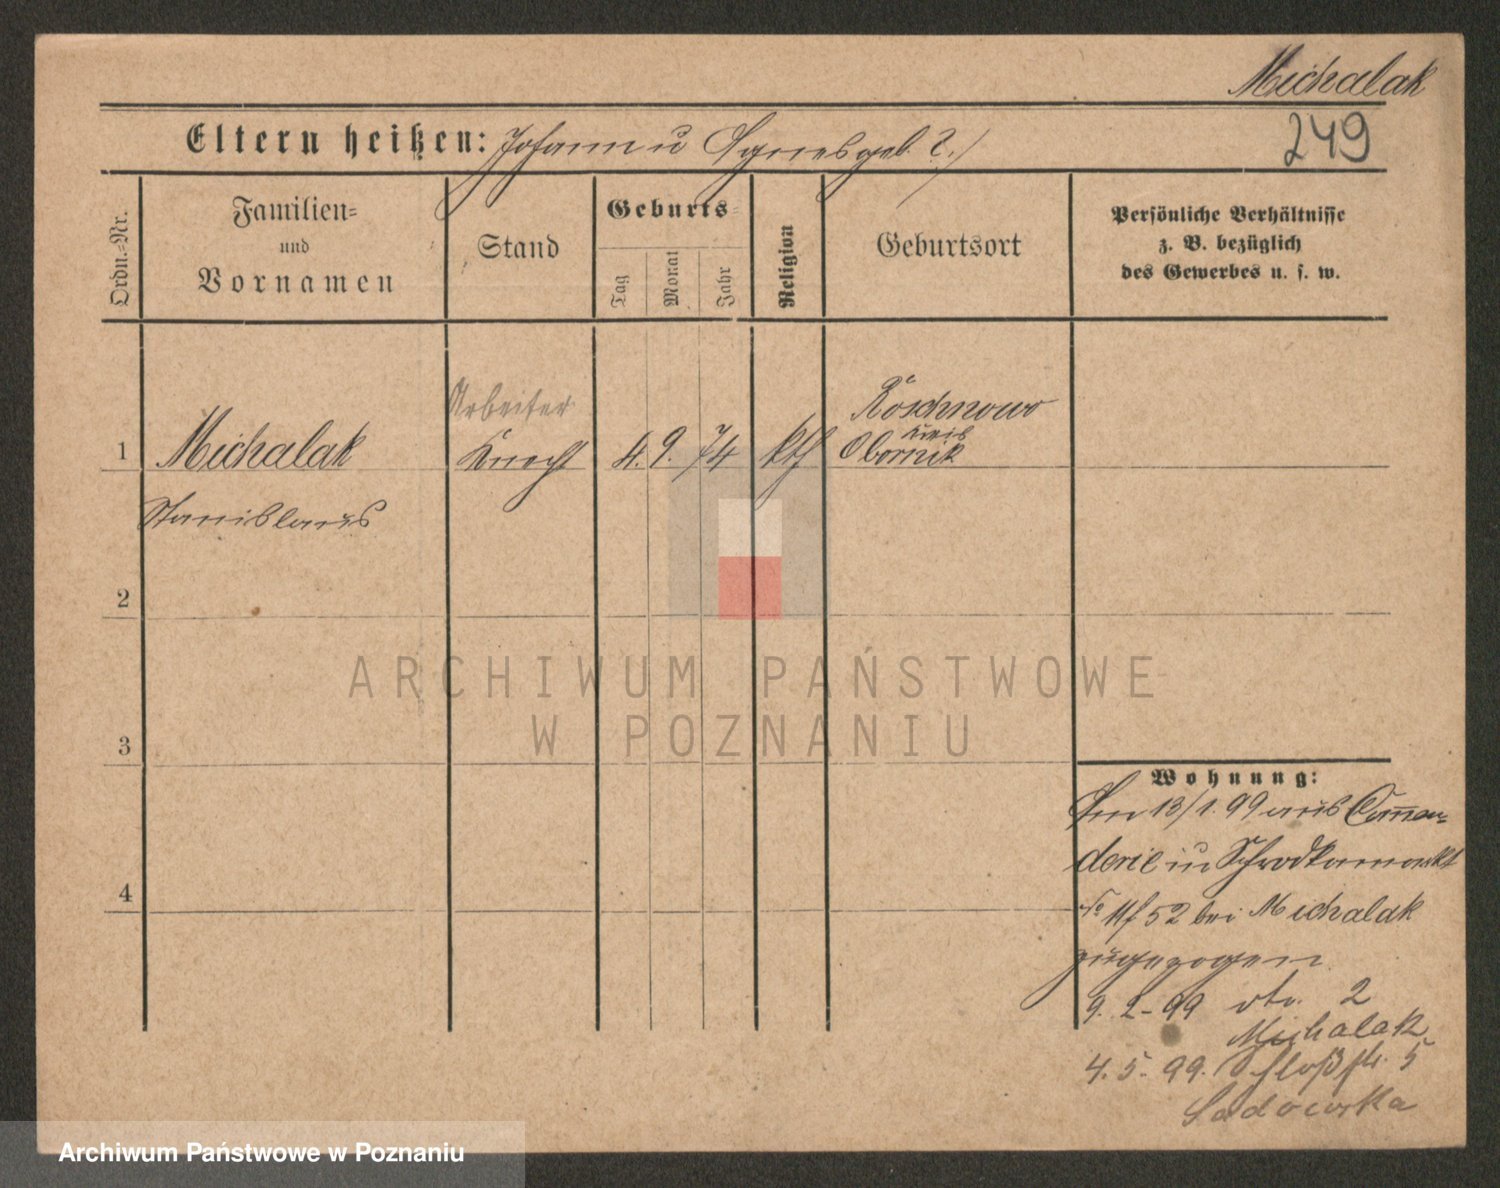 Michalak
249
Eltern heißen: Johann u Agnes geb. ?
Ordn.-Nr.
Familien-
und
Vornamen
Stand
Geburts-
Tag
Monat
Jahr
Religion
Geburtsort
Persönliche Verhältnisse
z. B. bezüglich
des Gewerbes u. s. w.
Arbeiter
1 Michalak Knecht 4. 9. 74 kth
Roschnowo
Kreis
Obornik
Stanislaus
2
3
4
Wohnung:
Am 13/1. 99 aus Comman-
derie in Schrodkamarkt
No 11/52 bei Michalak
zugezogen
9. 2. 99 dto. 2
Michalak
4. 5. 99. Schloßstr. 5
Sadowska
ARCHIWUM PAŃSTWOWE
W POZNANIU
Archiwum Państwowe w Poznaniu